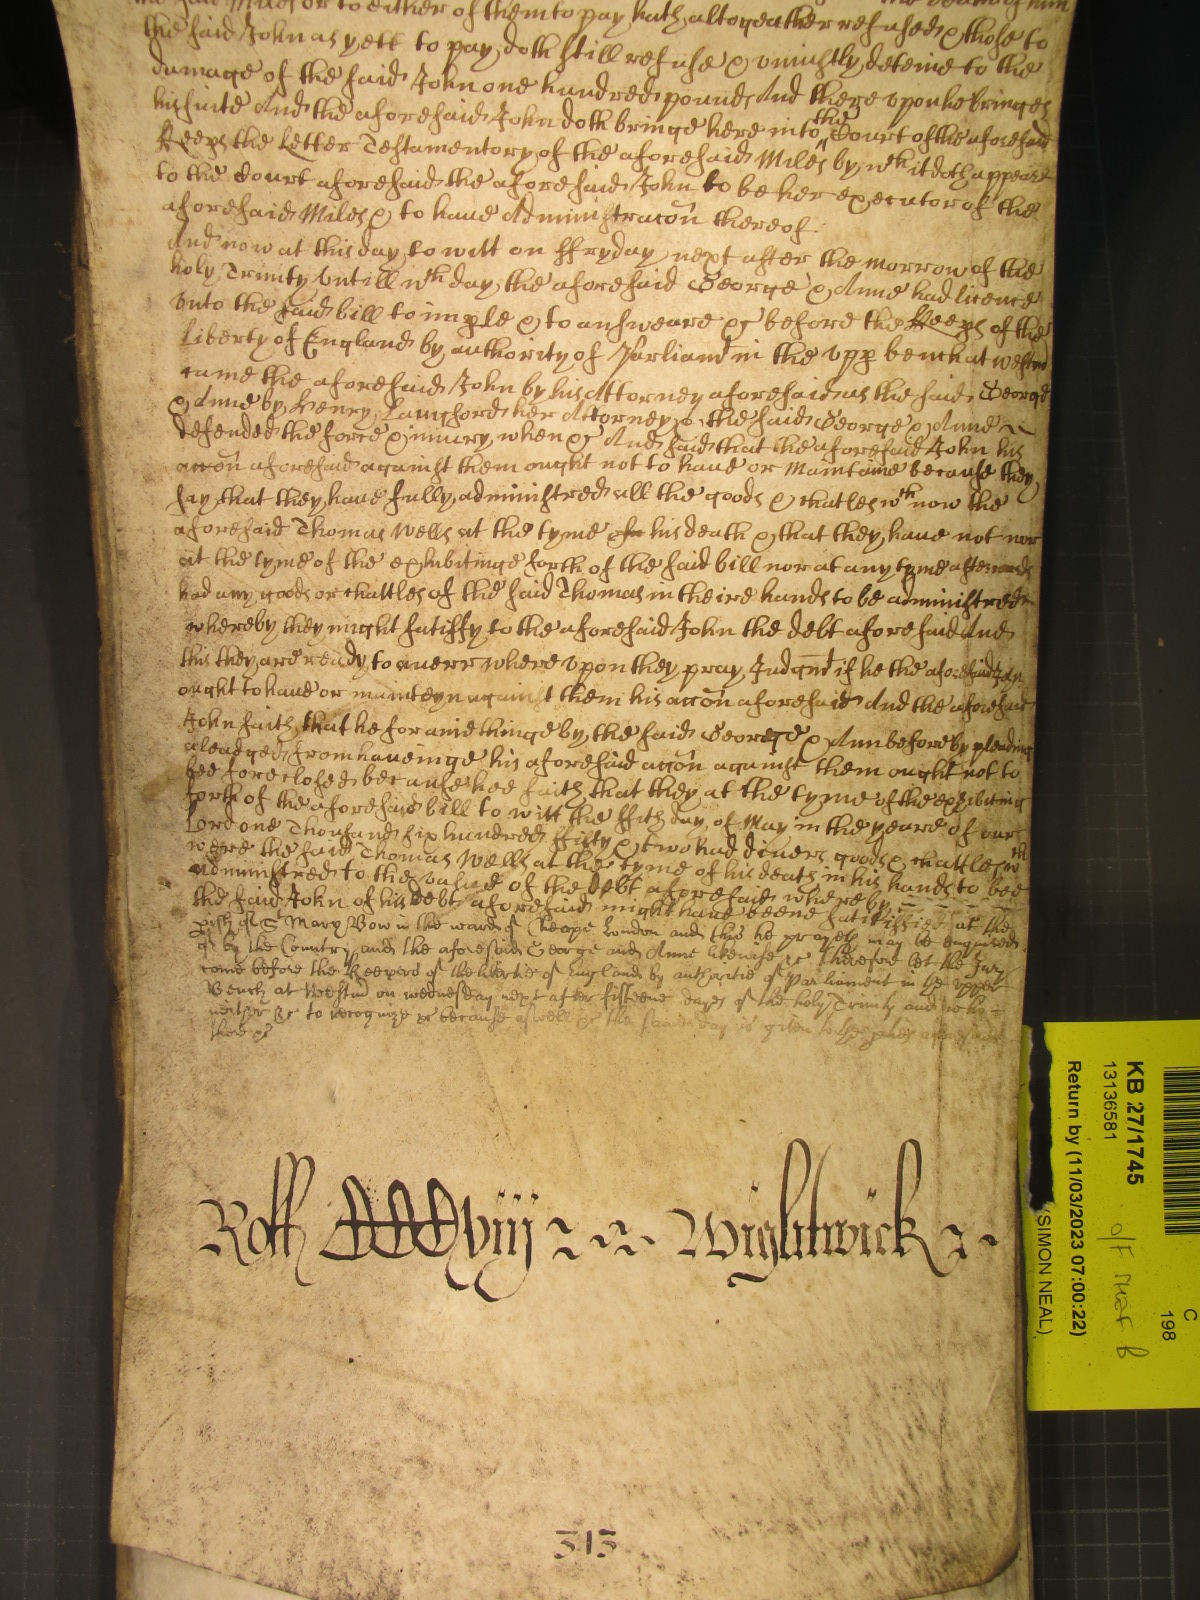 the said Miles or to either of them to pay hath altogeather refused & those to
the said John as yett to pay doth still refuse & uniustly deteine to the
damage of the said John one hundred pounds And there upon he bringes
his suite And the aforesaid John doth bringe here into the Court of the aforesaid
Keeps the Letter Testamentory of the aforesaid Miles by wch it doth appeare
to the Court aforesaid the aforesaid John to be her executor of the
aforesaid Miles & to have Administracon thereof
And now at this day to witt on ffryday next after the morrow of the
holy Trinity untill wth day the aforesaid George & Anne had licence
unto the said bill to imple & to answeare &c before the Keeps of the
Liberty of England by authority of Parliamt in the upp bench at Westm
came the aforesaid John by his Attorney aforesaid as the said George
& Anne by Henry Langford her Attorney & the said George & Anne
defended the force & iniury when &c And said that the aforesaid John his
accon aforesaid against them ought not to have or Maintaine because they
say that they have fully administred all the goods & chatles wth now the
aforesaid Thomas Wells at the tyme of his death & that they have not nor
at the tyme of the exhibitinge forth of the said bill nor at any tyme afterwards
had any goods or chattles of the said Thomas in theire hands to be administred
whereby they might satisfy to the aforesaid John the debt aforesaid And
this they are ready to averr where upon they pray Judgmt if he the aforesaid John
ought to have or mainteyn against them his accon aforesaid And the aforesaid
John saith that he for anie thinge by the said George & Ann before by pleading
aleadged from haveinge his aforesaid accon against them ought not to
bee foreclosed because hee saith that they at the tyme of the exhibiting
forth of the aforesaid bill to witt the ffith day of May in the yeare of our
Lord one Thousand six hundred ffifty & two had divers goods & chattles wth
were the said Thomas Wells at the tyme of his death in his hands to bee
administred to the value of the debt aforesaid whereby
the said John of his Debt aforesaid might have beene satisffied at the
pish of St Mary Bow in the ward of Cheape London and this he prayeth may be enquired
of by the Country and the aforesaid George and Anne likewise &c Therefore let the Jury
come before the Keepers of the libertie of England by authoritie of Parliament in the upper
Bench at Westm on wednesday next after fifteene dayes of the holy Trinity and who
neither &c to recognize &c because aswell &c the same day is given to the parties aforesaid
there &c
Roff CCCviij Wightwick
313
KB 27/1745
13136581
Return by (11/03/2023 07:00:22)
(SIMON NEAL)
C
198